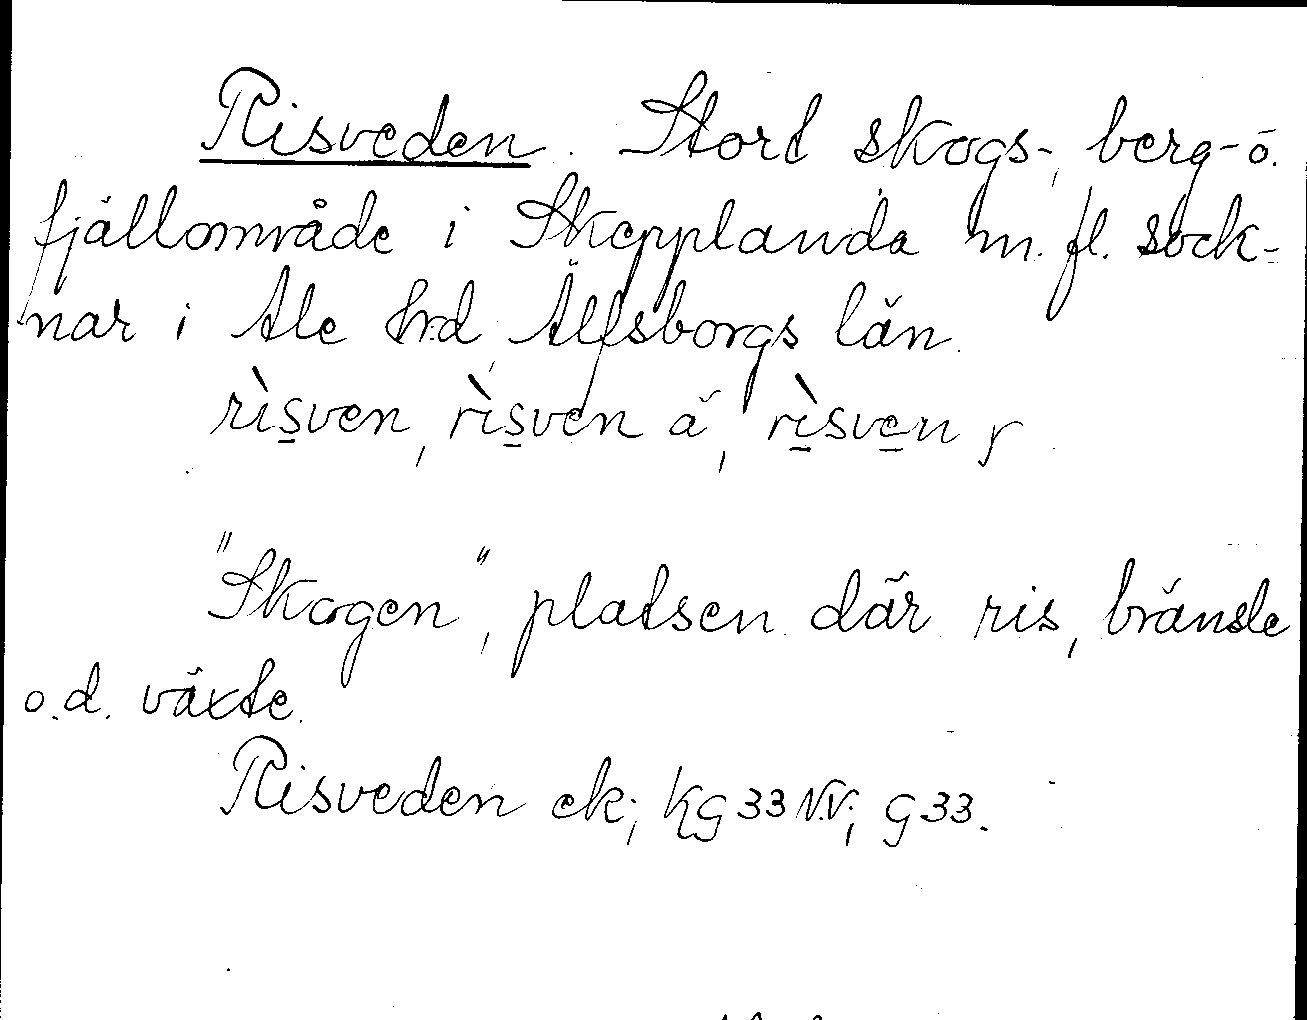 Risveden. Stort skogs-, berg- o.
fjällområde i Skepplanda m. fl. sock-
nar i Ale hrd, Älfsborgs län.
rìsven, rìsven ä, rìsven r
"Skogen", platsen där ris, bränsle
o. d. växte.
Risveden ek; KG 33 NV; G 33.